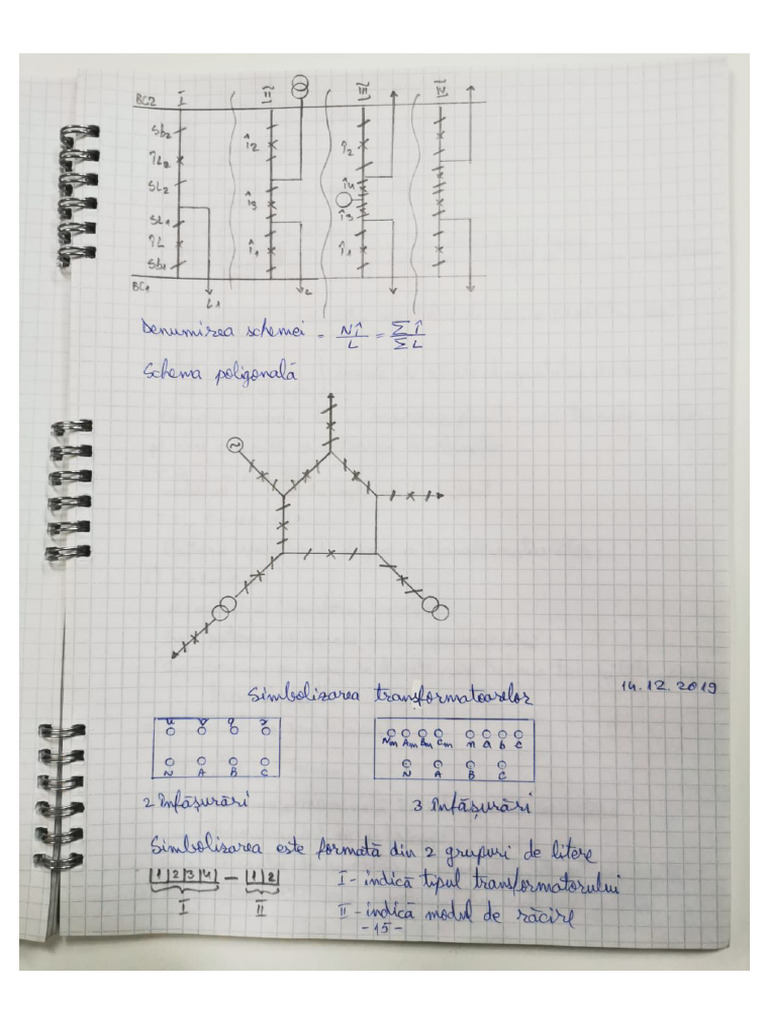 I II III IV
BC2
Sb2 Î2 Î2
ÎL2 Î4
SL2 Î3
SL1 Î3
ÎL Î1 Î1
Sb1
BC1 L1 L
Denumirea schemei = NÎ/L = ΣÎ/ΣL
Schema poligonală
~
14.12.2019
Simbolizarea transformatoarelor
Nm Am Bm Cm n a b c
N A B C
N A B C
2 înfășurări 3 înfășurări
Simbolizarea este formată din 2 grupuri de litere
|1|2|3|4| - |1|2| I - indică tipul transformatorului
I II II - indică modul de răcire
- 15 -